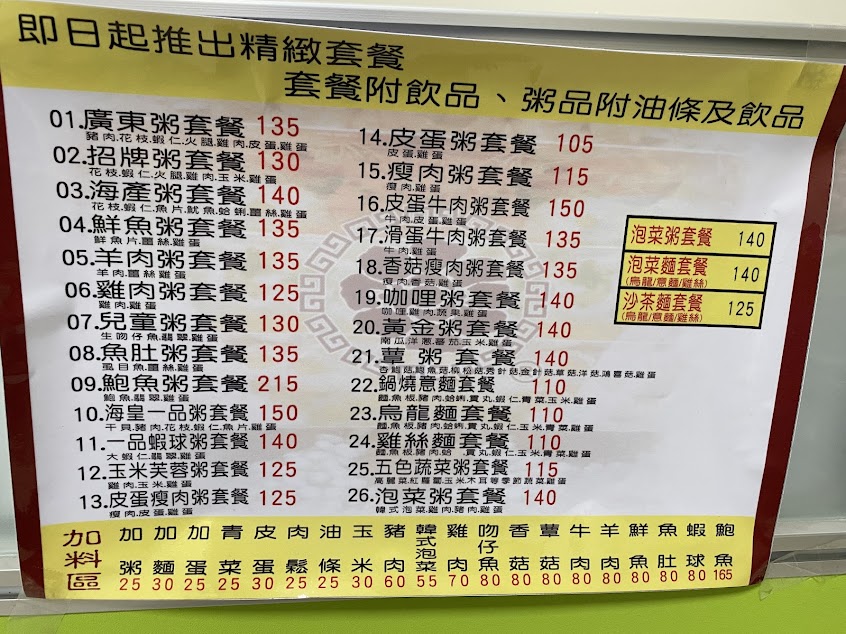 即日起推出精緻套餐
套餐附飲品、粥品附油條及飲品
01.廣東粥套餐 135
豬肉.花枝.蝦仁.火腿.雞肉.皮蛋.雞蛋
02.招牌粥套餐 130
花枝.蝦仁.火腿.雞肉.玉米.雞蛋
03.海產粥套餐 140
花枝.蝦仁.魚片.魷魚.蛤蜊.薑絲.雞蛋
04.鮮魚粥套餐 135
鮮魚片.薑絲.雞蛋
05.羊肉粥套餐 135
羊肉.薑絲.雞蛋
06.雞肉粥套餐 125
雞肉.雞蛋
07.兒童粥套餐 130
生吻仔魚.翡翠.雞蛋
08.魚肚粥套餐 135
虱目魚.薑絲.雞蛋
09.鮑魚粥套餐 215
鮑魚.翡翠.雞蛋
10.海皇一品粥套餐 150
干貝.豬肉.花枝.蝦仁.魚片.雞蛋
11.一品蝦球粥套餐 140
大蝦仁.翡翠.雞蛋
12.玉米芙蓉粥套餐 125
雞肉.玉米.雞蛋
13.皮蛋瘦肉粥套餐 125
瘦肉.皮蛋.雞蛋
14.皮蛋粥套餐 105
皮蛋.雞蛋
15.瘦肉粥套餐 115
瘦肉.雞蛋
16.皮蛋牛肉粥套餐 150
牛肉.皮蛋.雞蛋
17.滑蛋牛肉粥套餐 135
牛肉.雞蛋
18.香菇瘦肉粥套餐 135
瘦肉.香菇.雞蛋
19.咖哩粥套餐 140
咖哩.雞肉.蔬果.雞蛋
20.黃金粥套餐 140
南瓜.洋蔥.蕃茄.玉米.雞蛋
21.蕈粥套餐 140
22.鍋燒意麵套餐 110
麵.魚板.豬肉.蛤蜊.貢丸.蝦仁.青菜.玉米.雞蛋
23.烏龍麵套餐 110
麵.魚板.豬肉.蛤蜊.貢丸.蝦仁.玉米.青菜.雞蛋
24.雞絲麵套餐 110
麵.魚板.豬肉.蛤 .貢丸.蝦仁.玉米.青菜.雞蛋
25.五色蔬菜粥套餐 115
高麗菜.紅蘿蔔.玉米.木耳等季節蔬菜.雞蛋
26.泡菜粥套餐 140
韓式泡菜.雞肉.豬肉.雞蛋
泡菜粥套餐 140
泡菜麵套餐 140
(烏龍/意麵/雞絲)
沙茶麵套餐 125
(烏龍/意麵/雞絲)
加料區
加粥 25
加麵 30
加蛋 25
青菜 25
皮蛋 30
肉鬆 25
油條 25
玉米 30
豬肉 60
韓式泡菜 55
雞肉 70
吻仔魚 80
香菇 80
蕈菇 80
牛肉 80
羊肉 80
鮮魚 80
魚肚 80
蝦球 80
鮑魚 165